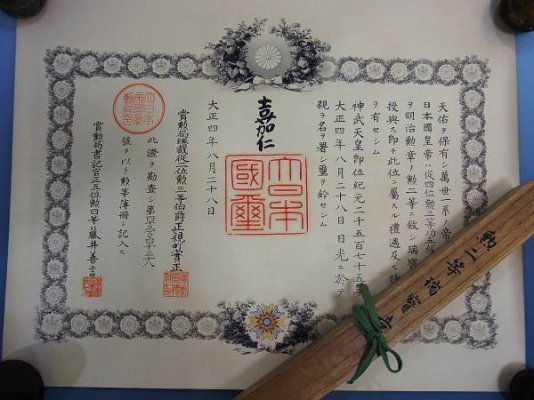 天佑ヲ保有シ萬世一系ノ帝
日本國皇帝ハ從四位勳三等功五
ヲ明治勳章ノ勳二等ニ敘シ瑞寶
授與ス即チ此位ニ屬スル禮遇及ヒ特
ヲ有セシム
神武天皇即位紀元二千五百七十五年
大正四年八月二十八日日光ニ於テ
親ラ名ヲ署シ璽ヲ鈐セシム
嘉仁
大日本國璽
大正四年八月二十八日
賞勳局總裁從二位勳二等伯爵正親町實正
此證ヲ勘査シ第
號ヲ以テ勳等簿冊ニ記入ス
賞勳局書記官正五位勳四等藤井善言
勲二等瑞寶章